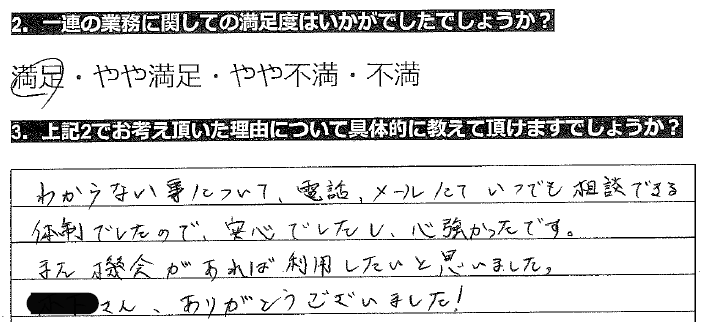 2. 一連の業務に関しての満足度はいかがでしたでしょうか？
満足・やや満足・やや不満・不満
3. 上記2でお考え頂いた理由について具体的に教えて頂けますでしょうか？
わからない事について、電話、メールにて いつでも相談できる
体制でしたので、安心でしたし、心強かったです。
また機会があれば利用したいと思いました。
さん、ありがとうございました!